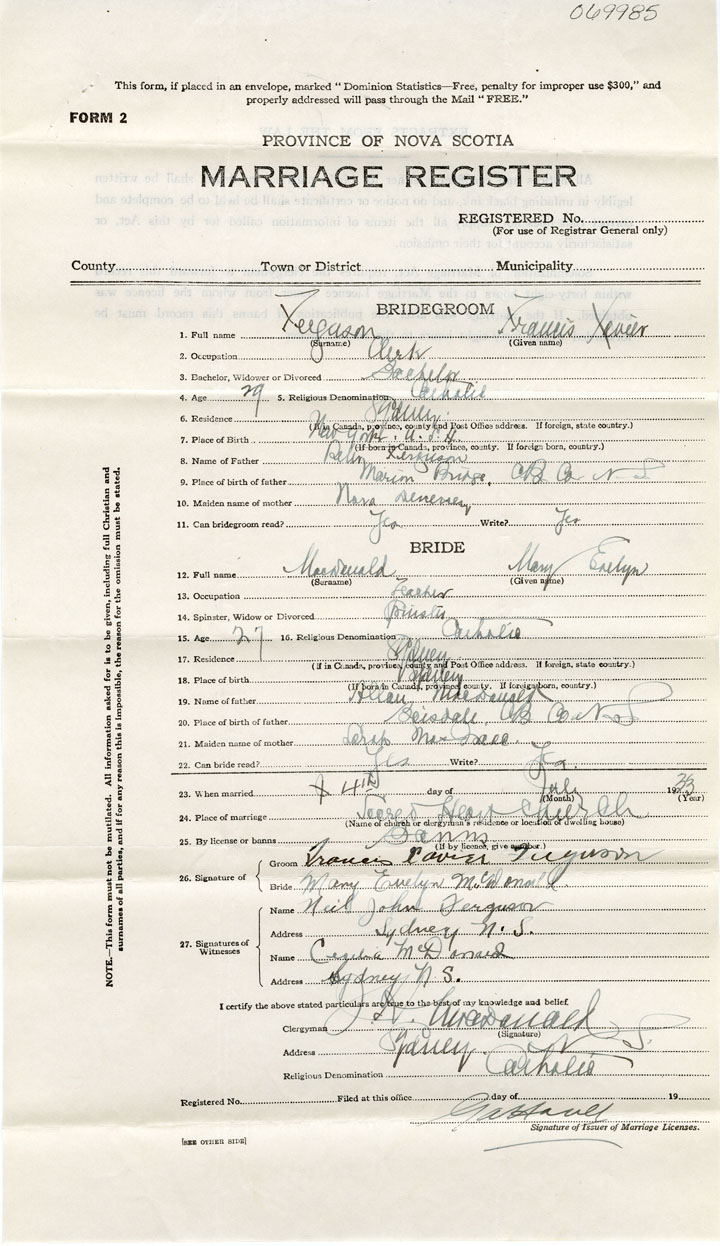 069985
This form, if placed in an envelope, marked “Dominion Statistics—Free, penalty for improper use $300,” and
properly addressed will pass through the Mail “FREE.”
FORM 2
PROVINCE OF NOVA SCOTIA
MARRIAGE REGISTER
REGISTERED No.
(For use of Registrar General only)
County Town or District Municipality
BRIDEGROOM
1. Full name Ferguson Francis Xavier
(Surname) (Given name)
2. Occupation Clerk
3. Bachelor, Widower or Divorced Bachelor
4. Age 29 5. Religious Denomination Catholic
6. Residence Sydney
(If in Canada, province, county and Post Office address. If foreign, state country.)
7. Place of Birth New York. U.S.A.
(If born in Canada, province, county. If foreign born, country.)
8. Name of Father Ferguson
9. Place of birth of father Marion Bridge, CB Co N S
10. Maiden name of mother
11. Can bridegroom read? Yes Write? Yes
BRIDE
12. Full name Macdonald Mary Evelyn
(Surname) (Given name)
13. Occupation Teacher
14. Spinster, Widow or Divorced Spinster
15. Age 27 16. Religious Denomination Catholic
17. Residence Sydney
(If in Canada, province, county and Post Office address. If foreign, state country.)
18. Place of birth Sydney
(If born in Canada, province, county. If foreign born, country.)
19. Name of father Allan Macdonald
20. Place of birth of father CB Co N S
21. Maiden name of mother
22. Can bride read? Yes Write? Yes
23. When married 4th day of July 1933
(Month) (Year)
24. Place of marriage Sacred Heart Church
(Name of church or clergyman's residence or location of dwelling house)
25. By license or banns Banns
(If by licence, give number.)
26. Signature of
Groom Francis Xavier Ferguson
Bride Mary Evelyn McDonald
27. Signatures of
Witnesses
Name Neil John Ferguson
Address Sydney N. S.
Name Cecelia McDonald
Address Sydney N. S.
I certify the above stated particulars are true to the best of my knowledge and belief.
Clergyman Macdonald
(Signature)
Address Sydney N S.
Religious Denomination Catholic
Registered No. Filed at this office day of 19
Signature of Issuer of Marriage Licenses.
[SEE OTHER SIDE]
NOTE.—This form must not be mutilated. All information asked for is to be given, including full Christian and
surnames of all parties, and if for any reason this is impossible, the reason for the omission must be stated.